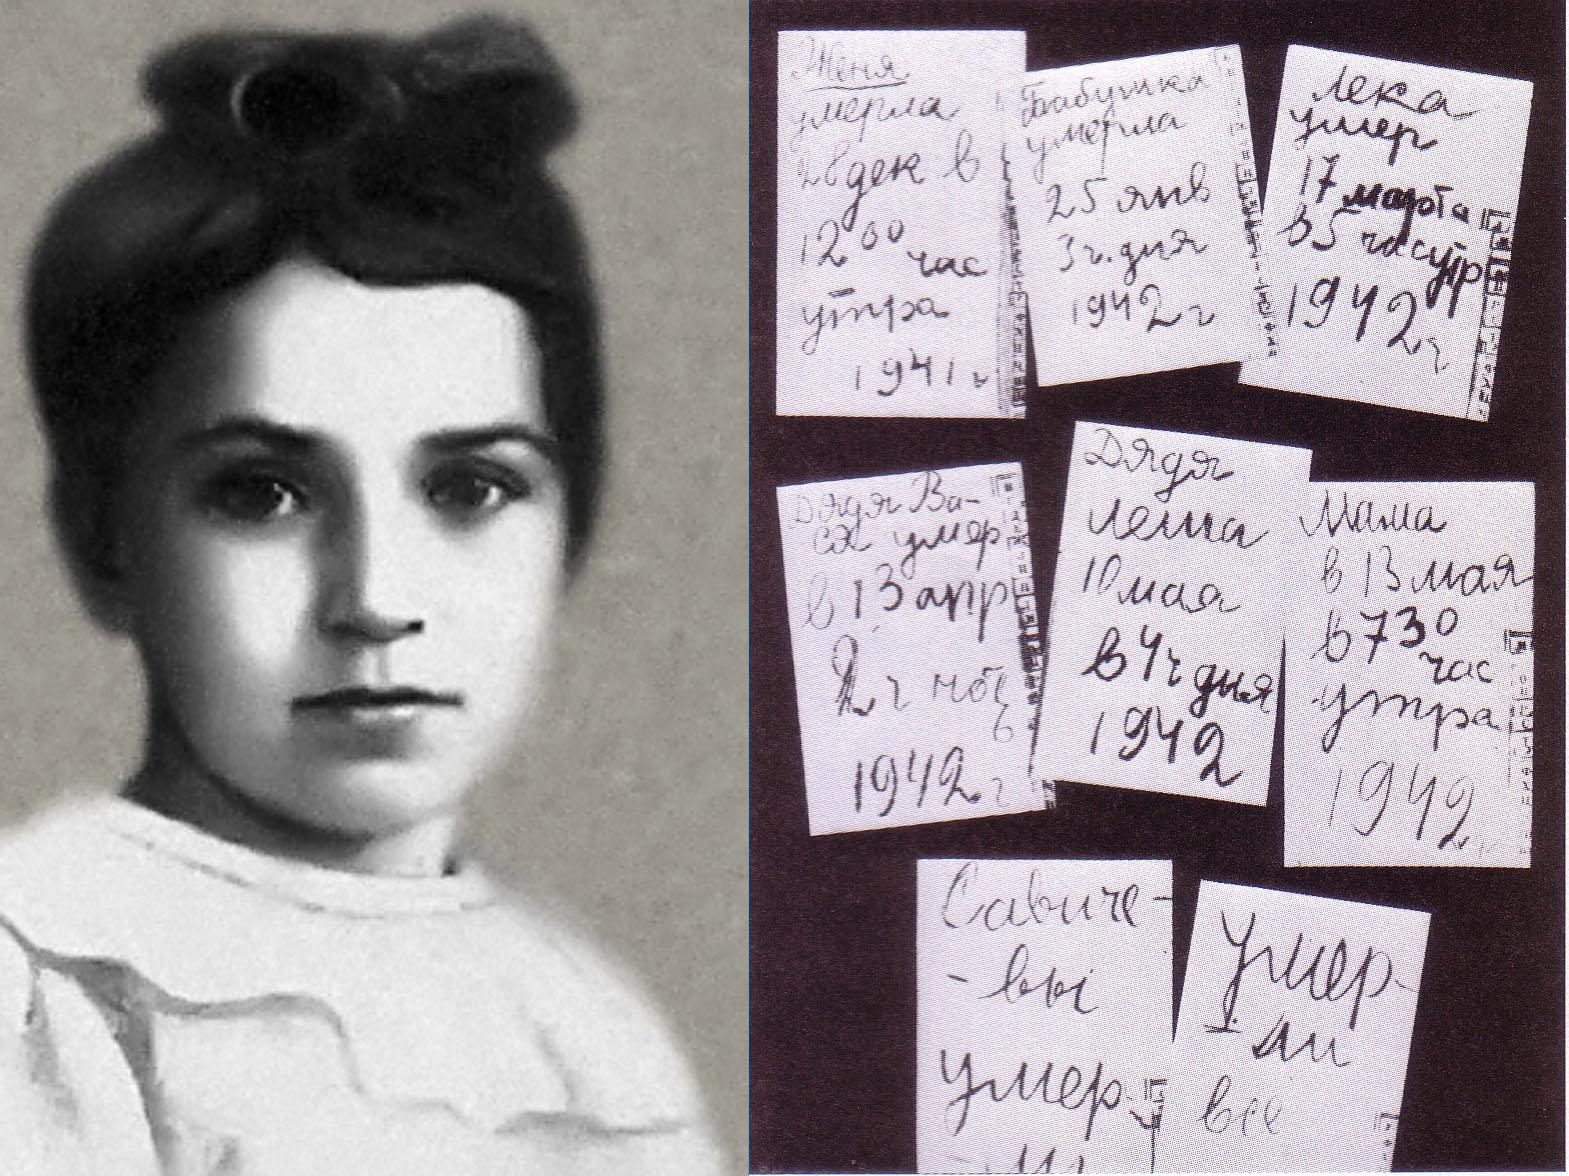 Женя
умерла
28 дек в
12 00 час
утра
1941 г
Бабушка
умерла
25 янв
3 ч. дня
1942 г
Лека
умер
17 марта
в 5 час утр
1942 г
Дядя Ва-
ся умер
в 13 апр
2 ч ноч
1942 г
Дядя
Леша
10 мая
в 4 ч дня
1942
Мама
в 13 мая
в 7 30
час
утра
1942
Савиче-
-вы
умер
Умер-
ли
все